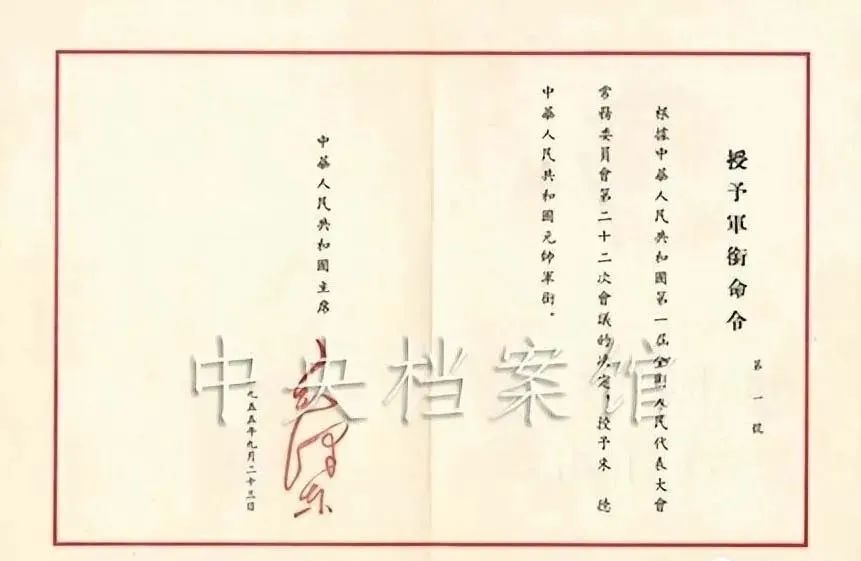 授予軍銜命令
第一號
根據中華人民共和國第一屆全國人民代表大會
常務委員會第二十二次會議的決定，授予朱 德
中華人民共和國元帥軍銜。
中華人民共和國主席
毛澤東
一九五五年九月二十三日
中央档案馆